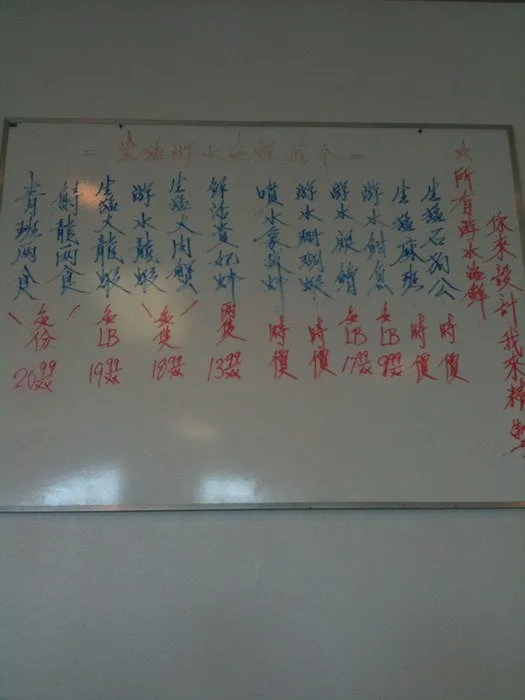 =生猛游水海鲜推介=
☆所有游水海鲜
你来設計我來精製
生猛石狗公 時價
生猛麻斑 時價
游水鉗魚 每LB 9.99
游水艇鯧 每LB 17.99
游水珊瑚蝦 時價
噴水象拔蚌 時價
鮮活貴妃蚌 两隻 13.99
生猛大肉蟹 每隻 18.99
游水龍蝦
生猛大龍蝦 每LB 19.99
龍两食
青斑两食 每份 20.99